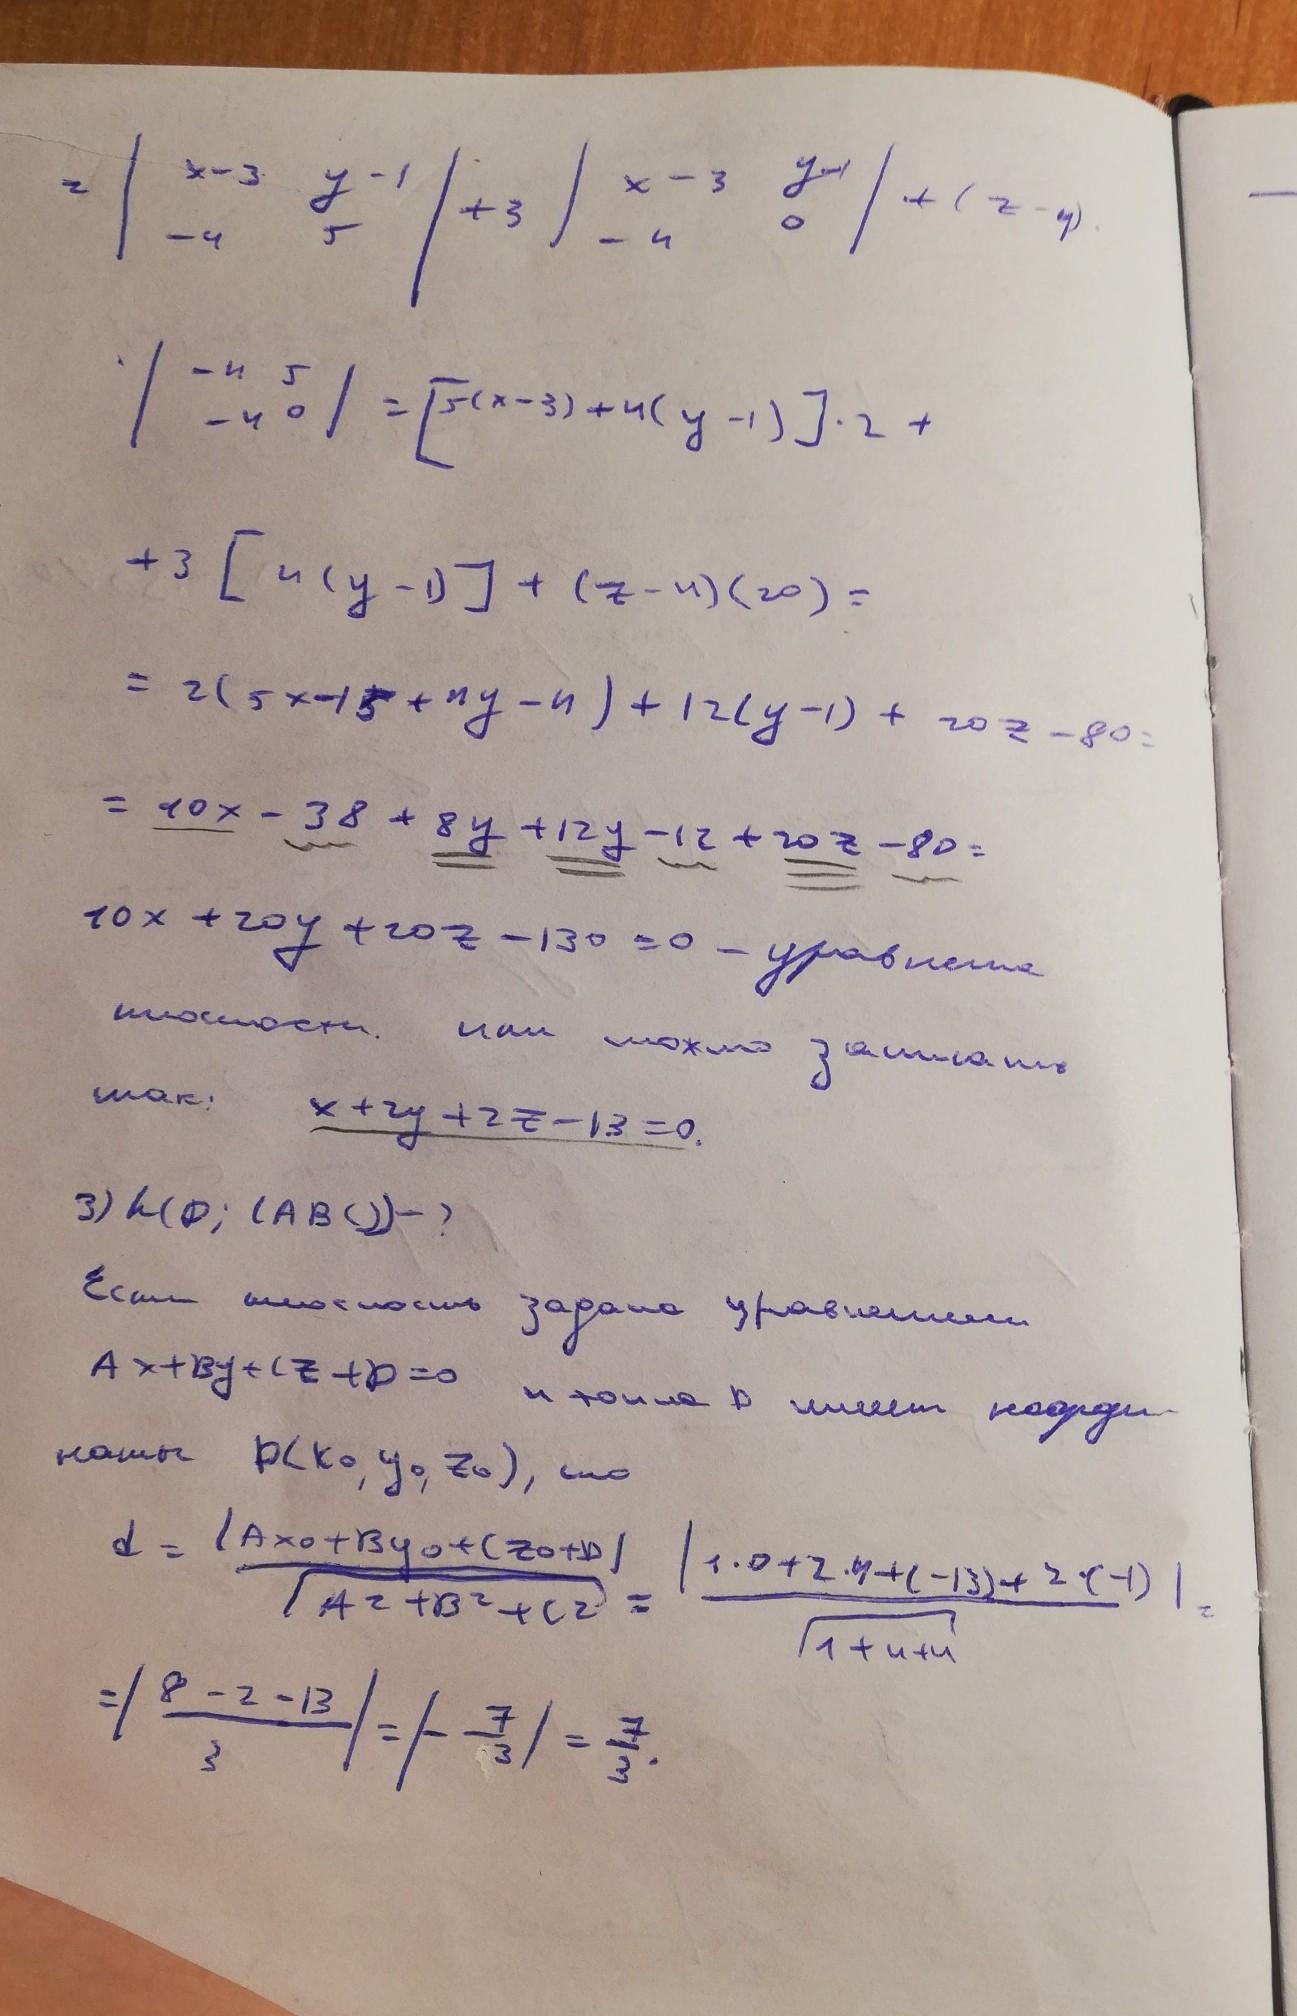 = | x-3 y-1 | +3 | x-3 y-1 | + (z-4).
-4 5 -4 0
· | -4 5 | = [5(x-3)+4(y-1)]·2 +
-4 0
+3 [4(y-1)] + (z-4)(20) =
= 2(5x-15+4y-4) + 12(y-1) + 20z-80=
= 10x - 38 + 8y +12y -12 +20z -80=
10x +20y +20z -130 =0 - уравнение
плоскости. или можно записать
так: x+2y+2z-13=0.
3) h(D; (ABC))-?
Если плоскость задана уравнением
Ax+By+Cz+D=0 и точка D имеет коорди-
наты D(x₀, y₀, z₀), то
d = |Ax₀+By₀+Cz₀+D| / √(A²+B²+C²) = |1·0+2·4+(-13)+2·(-1)| / √(1+4+4) =
= | (8-2-13)/3 | = | -7/3 | = 7/3.